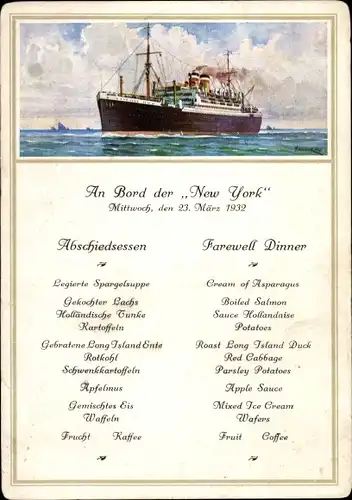 An Bord der „New York"
Mittwoch, den 23. März 1932
Abschiedsessen
Legierte Spargelsuppe
Gekochter Lachs
Holländische Tunke
Kartoffeln
Gebratene Long Island Ente
Rotkohl
Schwenkkartoffeln
Apfelmus
Gemischtes Eis
Waffeln
Frucht Kaffee
Farewell Dinner
Cream of Asparagus
Boiled Salmon
Sauce Hollandaise
Potatoes
Roast Long Island Duck
Red Cabbage
Parsley Potatoes
Apple Sauce
Mixed Ice Cream
Wafers
Fruit Coffee